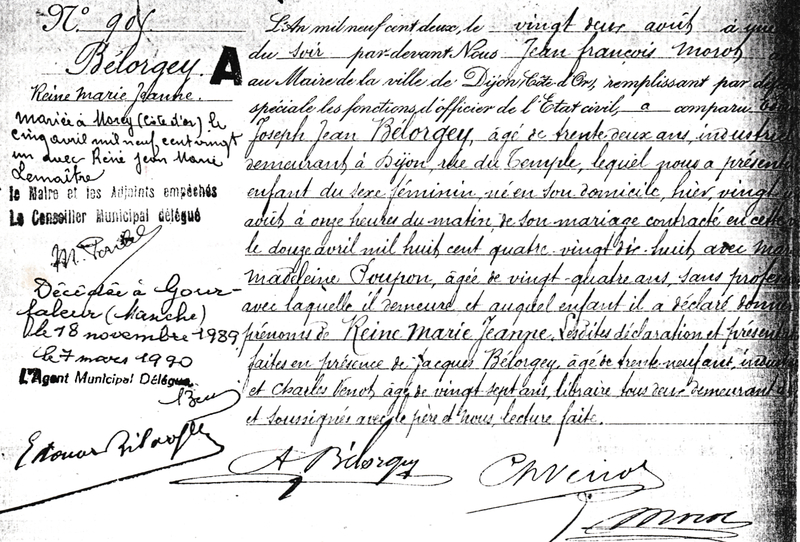 N° 905
Bélorgey.
A
Reine Marie Jeanne.
mariée à Morey (Côte d'or) le
cinq avril mil neuf cent vingt
un avec René Jean Marie
Lemaître
le Maire et les Adjoints empêchés
Le Conseiller Municipal délégué
Décédée à Gour-
faleur (Manche)
le 18 novembre 1989
le 7 mars 1990
L'Agent Municipal Délégué
L'An mil neuf cent deux, le vingt deux août à
du soir par-devant Nous Jean François Morot
au Maire de la ville de Dijon (Côte d'Or), remplissant par
spéciale les fonctions d'officier de l'Etat civil, a comparu
Joseph Jean Bélorgey, âgé de trente-deux ans, industriel
demeurant à Dijon, rue du Temple, lequel nous a présenté
enfant du sexe féminin, né en son domicile, hier, vingt
août à onze heures du matin, de son mariage contracté en cette
le douze avril mil huit cent quatre-vingt dix-huit avec
Madeleine Poupon, âgée de vingt-quatre ans, sans profession
avec laquelle il demeure et auquel enfant il a déclaré donner
prénoms de Reine Marie Jeanne. Lesdites déclaration et
faites en présence de Jacques Bélorgey, âgé de trente-neuf ans,
et Charles Venot âgé de vingt sept ans, libraire tous deux demeurant à
et soussignés avec le père et Nous, lecture faite.
A Bélorgey
Ch Venot
Morot